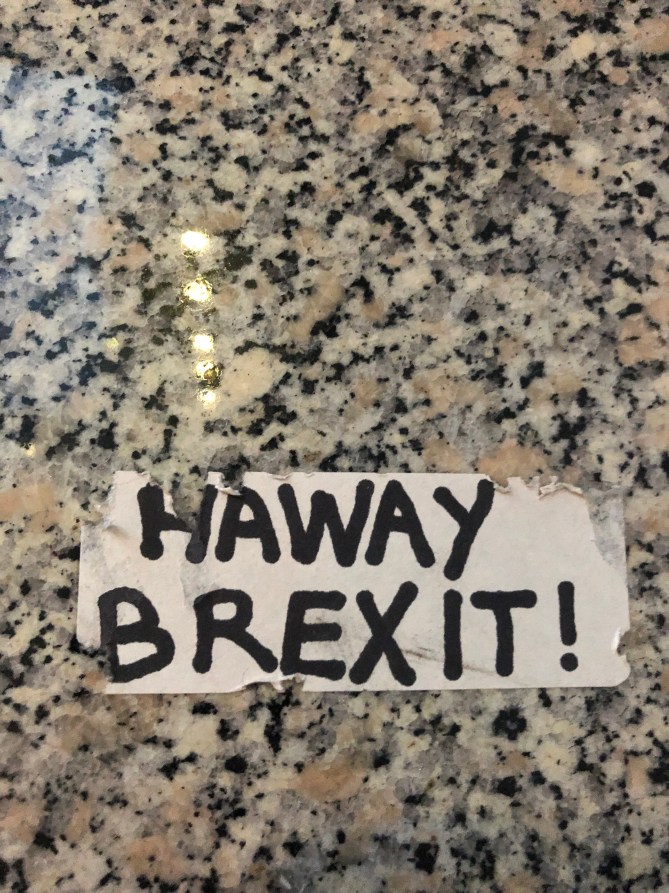 HAWAY
BREXIT!